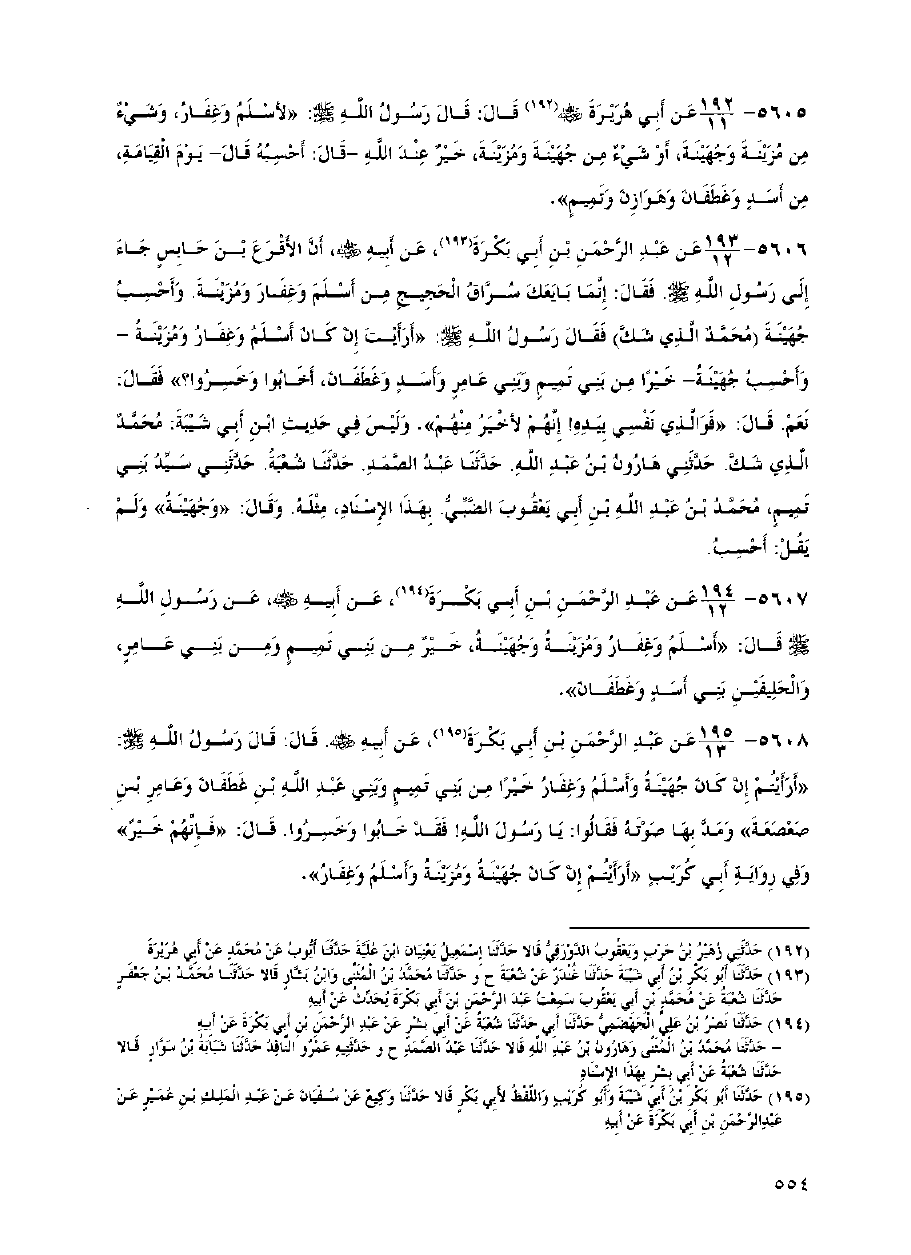 ٥٦٠٥- ١٩٢/١١ عَن أَبِي هُرَيْرَةَ ﷺ(١٩٢) قَالَ: قَالَ رَسُولُ اللَّهِ ﷺ: «لأَسْلَمُ وَغِفَارُ، وَشَيْءٌ
مِن مُزَيْنَةَ وَجُهَيْنَةَ، أَوْ شَيْءٌ مِن جُهَيْنَةَ وَمُزَيْنَةَ، خَيْرٌ عِنْدَ اللَّهِ -قَالَ: أَحْسِبُهُ قَالَ- يَوْمَ الْقِيَامَةِ،
مِن أَسَدٍ وَغَطَفَانَ وَهَوَازِنَ وَتَمِيمٍ».
٥٦٠٦- ١٩٣/١٢ عَن عَبْدِ الرَّحْمَنِ بْنِ أَبِي بَكْرَةَ(١٩٣)، عَن أَبِيهِ ﷺ، أَنَّ الأَقْرَعَ بْنَ حَابِسٍ جَاءَ
إِلَى رَسُولِ اللَّهِ ﷺ. فَقَالَ: إِنَّمَا بَايَعَكَ سُرَّاقُ الْحَجِيجِ مِن أَسْلَمَ وَغِفَارَ وَمُزَيْنَةَ. وَأَحْسِبُ
جُهَيْنَةَ (مُحَمَّدٌ الَّذِي شَكَّ) فَقَالَ رَسُولُ اللَّهِ ﷺ: «أَرَأَيْتَ إِنْ كَانَ أَسْلَمُ وَغِفَارُ وَمُزَيْنَةُ -
وَأَحْسِبُ جُهَيْنَةُ- خَيْرًا مِن بَنِي تَمِيمٍ وَبَنِي عَامِرٍ وَأَسَدٍ وَغَطَفَانَ، أَخَابُوا وَخَسِرُوا؟» فَقَالَ:
نَعَمْ. قَالَ: «فَوَالَّذِي نَفْسِي بِيَدِهِ! إِنَّهُمْ لأَخْيَرُ مِنْهُمْ». وَلَيْسَ فِي حَدِيثِ ابْنِ أَبِي شَيْبَةَ: مُحَمَّدٌ
الَّذِي شَكَّ. حَدَّثَنِي هَارُونُ بْنُ عَبْدِ اللَّهِ. حَدَّثَنَا عَبْدُ الصَّمَدِ. حَدَّثَنَا شُعْبَةُ. حَدَّثَنِي سَيِّدُ بَنِي
تَمِيمٍ، مُحَمَّدُ بْنُ عَبْدِ اللَّهِ بْنِ أَبِي يَعْقُوبَ الضَّبِّيُّ. بِهَذَا الإِسْنَادِ، مِثْلَهُ. وَقَالَ: «وَجُهَيْنَةُ» وَلَمْ
يَقُلْ: أَحْسِبُ.
٥٦٠٧- ١٩٤/١٢ عَن عَبْدِ الرَّحْمَنِ بْنِ أَبِي بَكْرَةَ(١٩٤)، عَن أَبِيهِ ﷺ، عَن رَسُولِ اللَّهِ
ﷺ قَالَ: «أَسْلَمُ وَغِفَارُ وَمُزَيْنَةُ وَجُهَيْنَةُ، خَيْرٌ مِن بَنِي تَمِيمٍ وَمِن بَنِي عَامِرٍ،
وَالْحَلِيفَيْنِ بَنِي أَسَدٍ وَغَطَفَانَ».
٥٦٠٨- ١٩٥/١٣ عَن عَبْدِ الرَّحْمَنِ بْنِ أَبِي بَكْرَةَ(١٩٥)، عَن أَبِيهِ ﷺ. قَالَ: قَالَ رَسُولُ اللَّهِ ﷺ:
«أَرَأَيْتُمْ إِنْ كَانَ جُهَيْنَةُ وَأَسْلَمُ وَغِفَارُ خَيْرًا مِن بَنِي تَمِيمٍ وَبَنِي عَبْدِ اللَّهِ بْنِ غَطَفَانَ وَعَامِرِ بْنِ
صَعْصَعَةَ» وَمَدَّ بِهَا صَوْتَهُ فَقَالُوا: يَا رَسُولَ اللَّهِ! فَقَدْ خَابُوا وَخَسِرُوا. قَالَ: «فَإِنَّهُمْ خَيْرٌ»
وَفِي رِوَايَةِ أَبِي كُرَيْبٍ «أَرَأَيْتُمْ إِنْ كَانَ جُهَيْنَةُ وَمُزَيْنَةُ وَأَسْلَمُ وَغِفَارُ».
(١٩٢) حَدَّثَنِي زُهَيْرُ بْنُ حَرْبٍ وَيَعْقُوبُ الدَّوْرَقِيُّ قَالا حَدَّثَنَا إِسْمَعِيلُ يَعْنِيَانِ ابْنَ عُلَيَّةَ حَدَّثَنَا أَيُّوبُ عَنْ مُحَمَّدٍ عَنْ أَبِي هُرَيْرَةَ
(١٩٣) حَدَّثَنَا أَبُو بَكْرِ بْنُ أَبِي شَيْبَةَ حَدَّثَنَا غُنْدَرٌ عَنْ شُعْبَةَ ح و حَدَّثَنَا مُحَمَّدُ بْنُ الْمُثَنَّى وَابْنُ بَشَّارٍ قَالا حَدَّثَنَا مُحَمَّدُ بْنُ جَعْفَرٍ
حَدَّثَنَا شُعْبَةُ عَنْ مُحَمَّدِ بْنِ أَبِي يَعْقُوبَ سَمِعْتُ عَبْدَ الرَّحْمَنِ بْنَ أَبِي بَكْرَةَ يُحَدِّثُ عَنْ أَبِيهِ
(١٩٤) حَدَّثَنَا نَصْرُ بْنُ عَلِيٍّ الْجَهْضَمِيُّ حَدَّثَنَا أَبِي حَدَّثَنَا شُعْبَةُ عَنْ أَبِي بِشْرٍ عَنْ عَبْدِ الرَّحْمَنِ بْنِ أَبِي بَكْرَةَ عَنْ أَبِيهِ
- حَدَّثَنَا مُحَمَّدُ بْنُ الْمُثَنَّى وَهَارُونُ بْنُ عَبْدِ اللَّهِ قَالا حَدَّثَنَا عَبْدُ الصَّمَدِ ح و حَدَّثَنِيهِ عَمْرٌو النَّاقِدُ حَدَّثَنَا شَبَابَةُ بْنُ سَوَّارٍ قَالا
حَدَّثَنَا شُعْبَةُ عَنْ أَبِي بِشْرٍ بِهَذَا الإِسْنَادِ
(١٩٥) حَدَّثَنَا أَبُو بَكْرِ بْنُ أَبِي شَيْبَةَ وَأَبُو كُرَيْبٍ وَاللَّفْظُ لأَبِي بَكْرٍ قَالا حَدَّثَنَا وَكِيعٌ عَنْ سُفْيَانَ عَنْ عَبْدِ الْمَلِكِ بْنِ عُمَيْرٍ عَنْ
عَبْدِالرَّحْمَنِ بْنِ أَبِي بَكْرَةَ عَنْ أَبِيهِ
٥٥٤